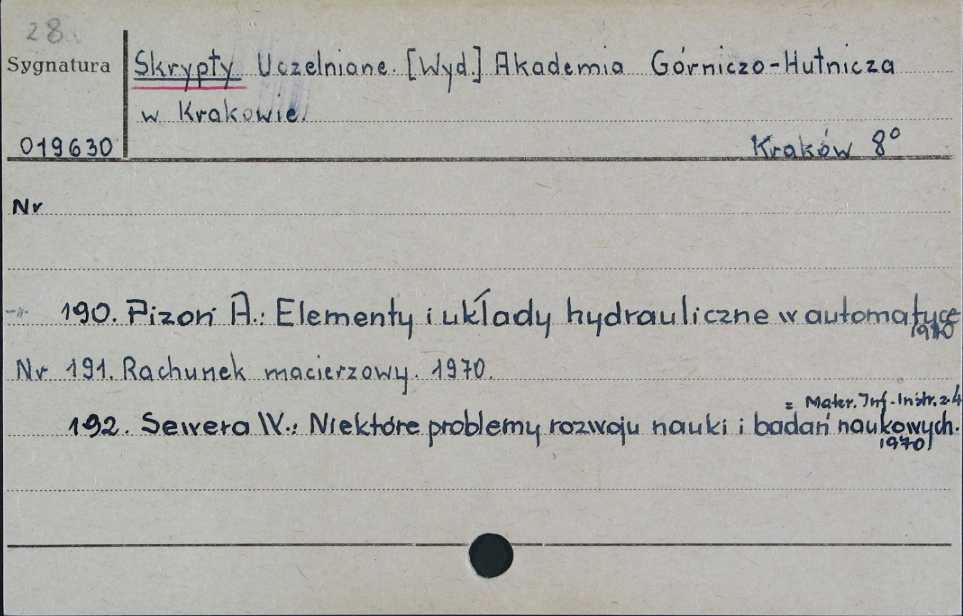 28.
Sygnatura
Skrypty Uczelniane. [Wyd.] Akademia Górniczo-Hutnicza
w Krakowie.
019630
Kraków 8°
Nr
-"- 190. Pizoń A.: Elementy i układy hydrauliczne w automatyce
1970
Nr 191. Rachunek macierzowy. 1970.
= Mater. Inf.-Instr. z. 4
192. Sewera W.: Niektóre problemy rozwoju nauki i badań naukowych.
1970